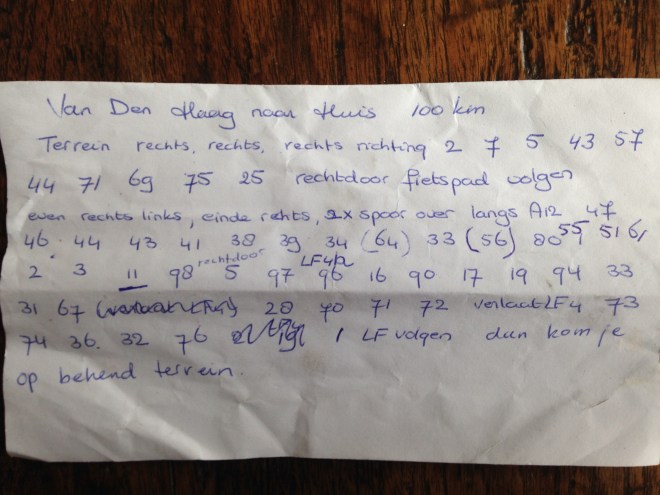 Van Den Haag naar Huis 100 km
Terrein rechts, rechts, rechts richting 2 7 5 43 57
44 71 69 75 25 rechtdoor fietspad volgen
even rechts links, einde rehts, 2x spoor over langs A12 47
46. 44 43 41 38 39 34 (64) 33 (56) 80 55 51 61
rechtdoor LF4
2 3 11 98 5 97 96 16 90 17 19 94 33
31 67 28 70 71 72 verlaat LF4 73
74 36. 32 76 1 LF volgen dan kom je
op behend terrein.